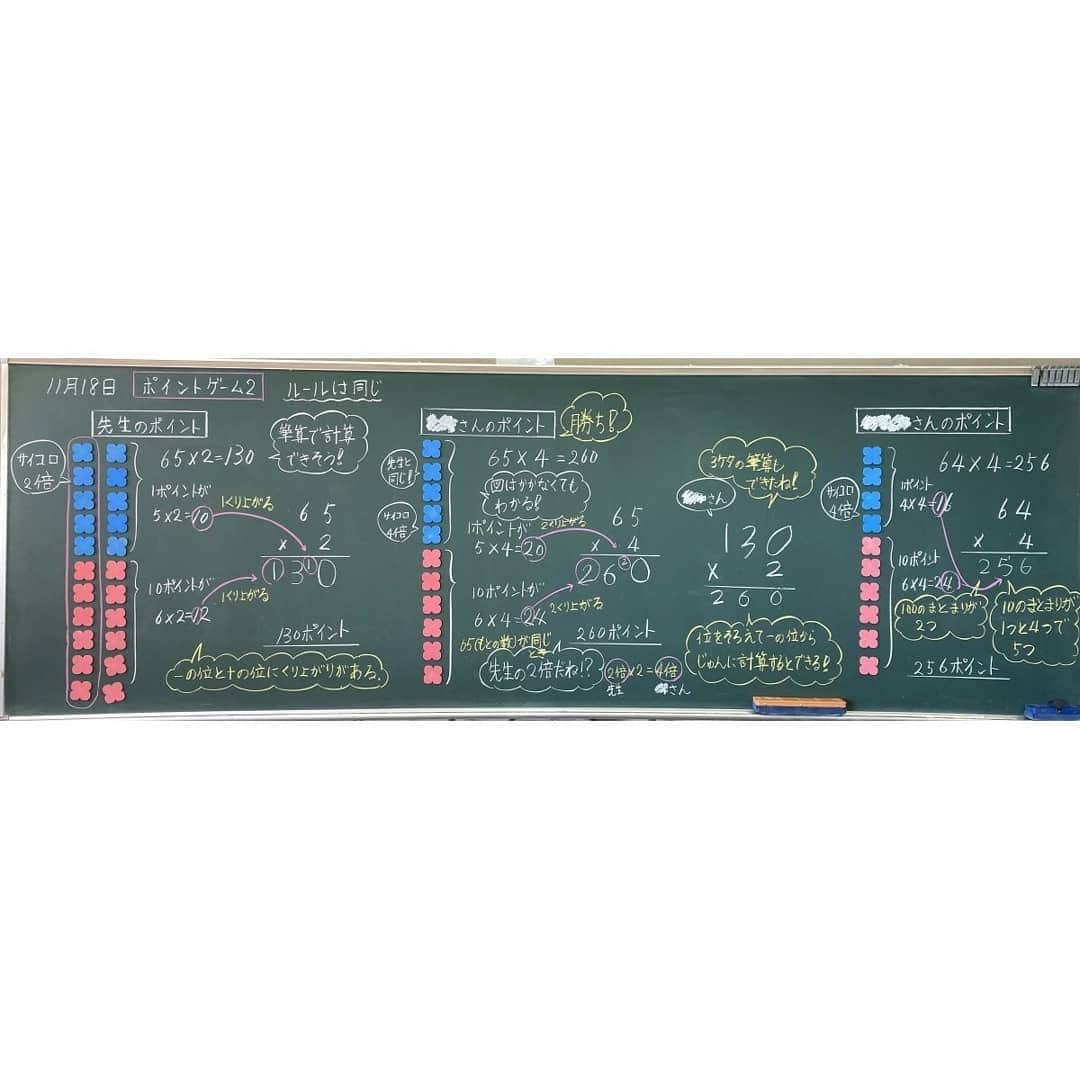 11月18日 ポイントゲーム2 ルールは同じ
先生のポイント
サイコロ
2倍
65×2=130
筆算で計算
できそう!
1ポイントが
5×2=10
1くり上がる
65
×2
130
1
10ポイントが
6×2=12
1くり上がる
130ポイント
一の位と十の位にくり上がりがある.
さんのポイント
勝ち!
先生と
同じ!
サイコロ
4倍
65×4=260
図はかかなくても
わかる!
1ポイントが
5×4=20
2くり上がる
65
×4
260
2
10ポイントが
6×4=24
2くり上がる
65(もとの数)が同じ
260ポイント
先生の2倍だね!?
2倍×2=4倍
先生 さん
3ケタの筆算も
できたね!
さん
130
×2
260
位をそろえて一の位から
じゅんに計算するとできる!
さんのポイント
サイコロ
4倍
64×4=256
1ポイント
4×4=16
64
×4
256
10ポイント
6×4=24
100のまとまりが
2つ
10のまとまりが
1つと4つで
5つ
256ポイント